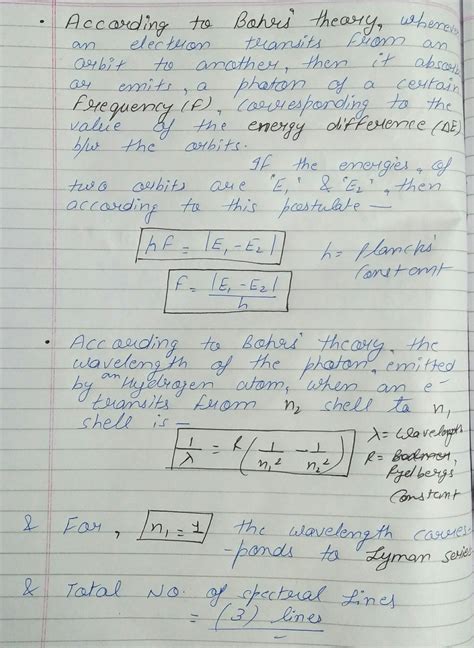 • According to Bohrs' theory, whenever
an electron transits from an
orbit to another, then it absorbs
or emits, a photon of a certain
Frequency (F), corresponding to the
value of the energy difference (ΔE)
b/w the orbits.
If the energies, of
two orbits are "E₁" & "E₂", then
according to this postulate —
hF = |E₁ - E₂| h = Plancks'
Constant
F = |E₁ - E₂| / h
• According to Bohrs' theory, the
wavelength of the photon, emitted
by an Hydrogen atom, when an e⁻
transits from n₂ shell to n₁
shell is —
1/λ = R(1/n₁² - 1/n₂²) λ = Wavelength
R =
Rydbergs
Constant
& For, n₁ = 1 the wavelength corres
-ponds to Lyman series
& Total No. of spectral lines
= (3) lines